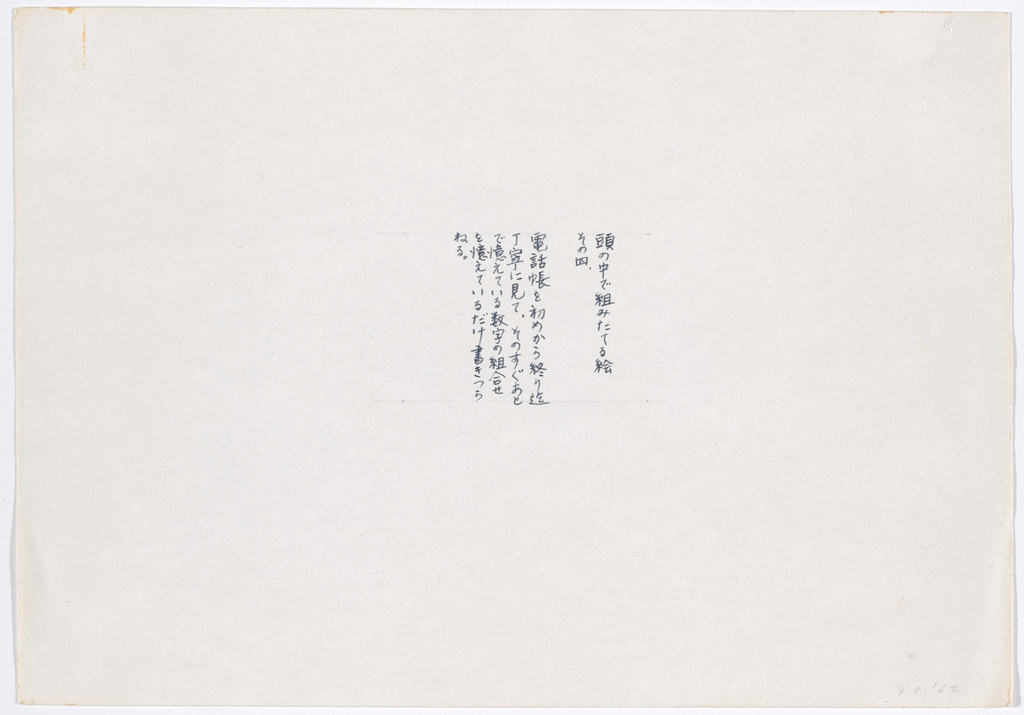 頭の中で組みたてる絵
その四.
電話帳を初めから終り迄
丁寧に見て、そのすぐあと
で憶えている数字の組合せ
を憶えているだけ書きつら
ねる。
y o.'62